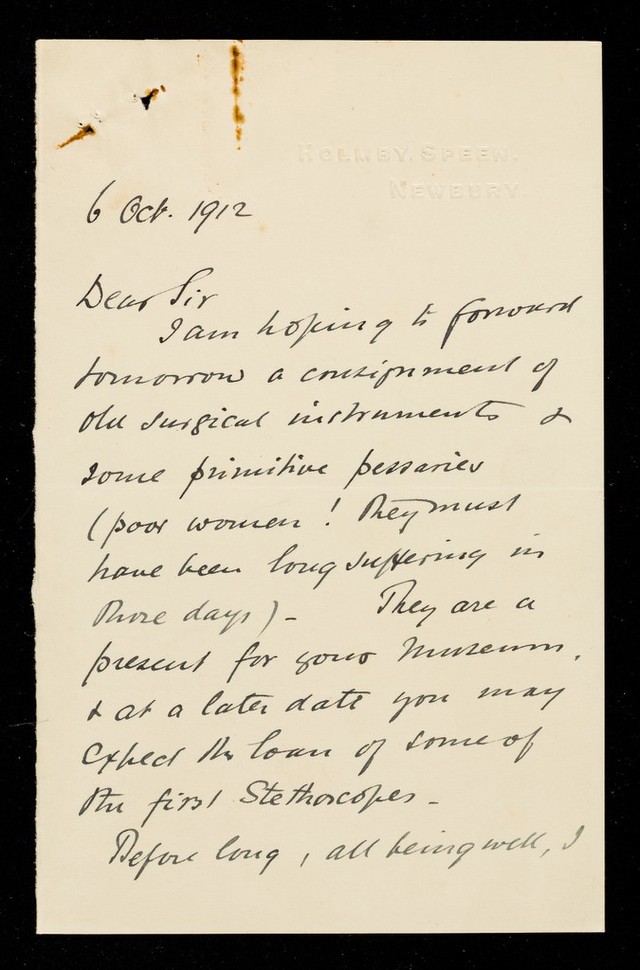 HOLMBY, SPEEN,
NEWBURY.
6 Oct. 1912
Dear Sir
I am hoping to forward
tomorrow a consignment of
old surgical instruments &
some primitive pessaries
(poor women! They must
have been long suffering in
those days) - They are a
present for your Museum,
& at a later date you may
expect the loan of some of
the first Stethoscopes -
Before long, all being well, I